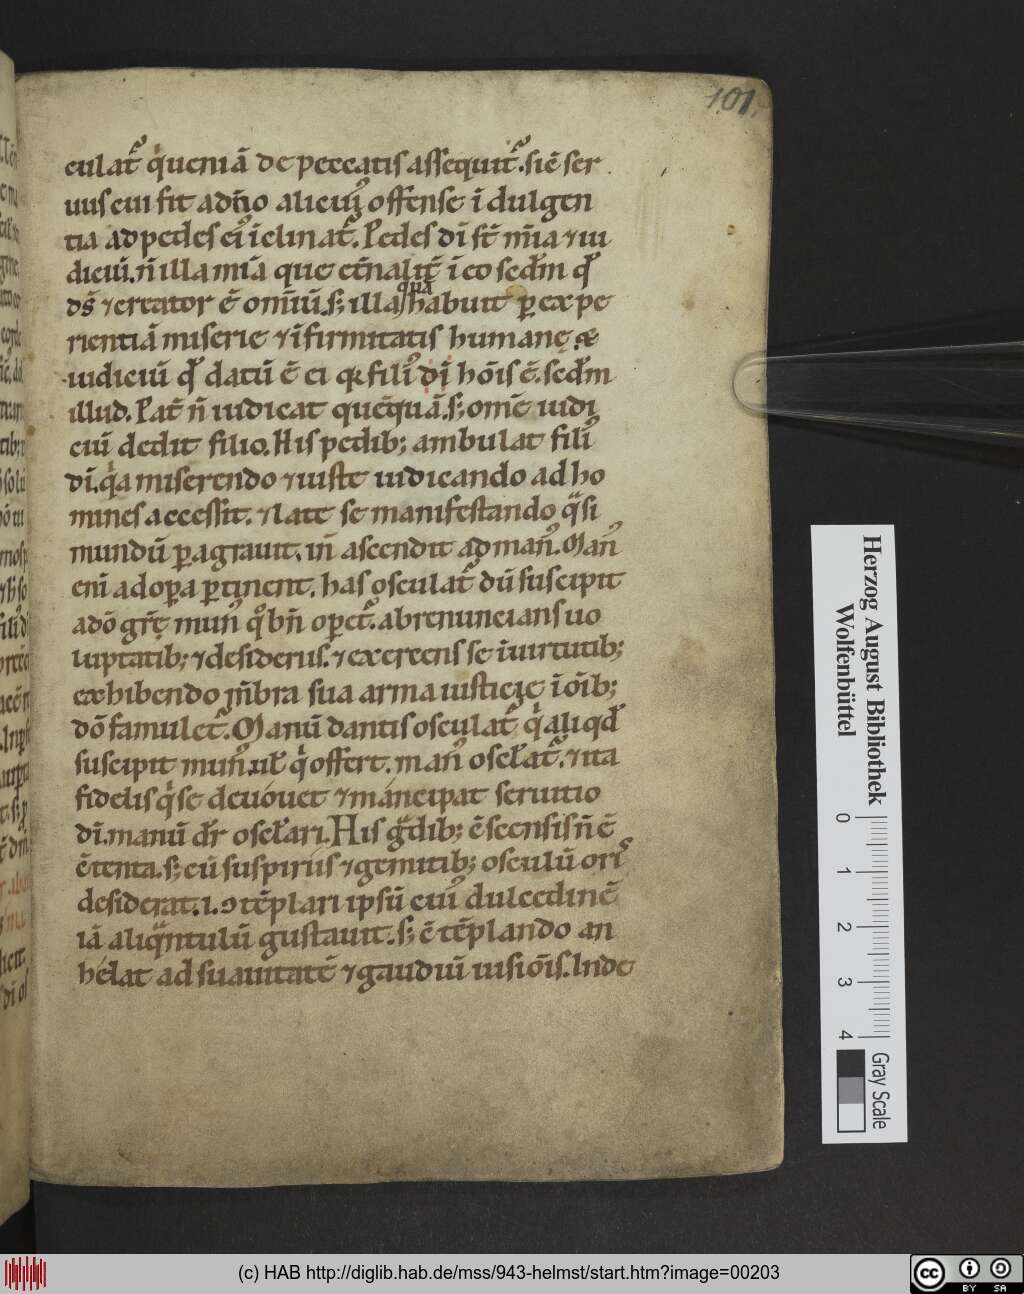 101.
culat᷑ q ueniā de peccatis assequit᷑. sic̄ ser
uus cui fit a dn̄o alicuiꝰ offense īdulgen
tia ad pedes eiꝰ īclinat᷑. Pedes dī st̄ mīa ⁊ iu
diciū. n̄ illa mīa que et̄nalit̄ ī eo sedm̄ qd̄
ds̄ ⁊ creator ē om̄iū. sꝫ illa qͣ habuit ꝑ expe
rientiā miserie ⁊ īfirmitatis humanę. &
iudiciū qd̄ datū ē ei qꝛ filiꝰ dī hōis ē. sedm̄
illud. Pat̄ n̄ iudicat quēquā. sꝫ om̄e iudi
ciū dedit filio. His pedibꝫ ambulat filiꝰ
dī. qa miserendo ⁊ iuste iudicando ad ho
mines accessit. ⁊ late se manifestando qͣsi
mundū ꝑagrauit. in̄ ascendit ad manꝰ. Manꝰ
eni adopa ꝑtinent. has osculat᷑ dū suscipit
a dō gr̄ę munꝰ qͦ bn̄ opet᷑. abrenuncians uo
luptatibꝫ ⁊ desideriis. ⁊ exercens se ī uirtutibꝫ
exhibendo m̄bra sua arma iusticię ī oībꝫ
dō famulet᷑. Manū dantis osculat᷑ q aliqd̄
suscipit munꝰ. ul̄ q offert. manꝰ oscl̄at᷑. ⁊ ita
fidelis q se deuouet ⁊ mancipat seruitio
dī. manū dr̄ oscl̄ari. His gͣdibꝫ ēscensis n̄ ē
ctenta. sꝫ cū suspiriis ⁊ gemitibꝫ osculū oriꝰ
desiderat. i. ꝯtēplari ipsū cuiꝰ dulcedinē
iā aliqͣntulū gustauit. sꝫ ctēplando an
helat ad suauitatē ⁊ gaudiū uisiōis. Inde
Herzog August Bibliothek
Wolfenbüttel
0 1 2 3 4
Gray Scale
(c) HAB http://diglib.hab.de/mss/943-helmst/start.htm?image=00203
cc BY SA